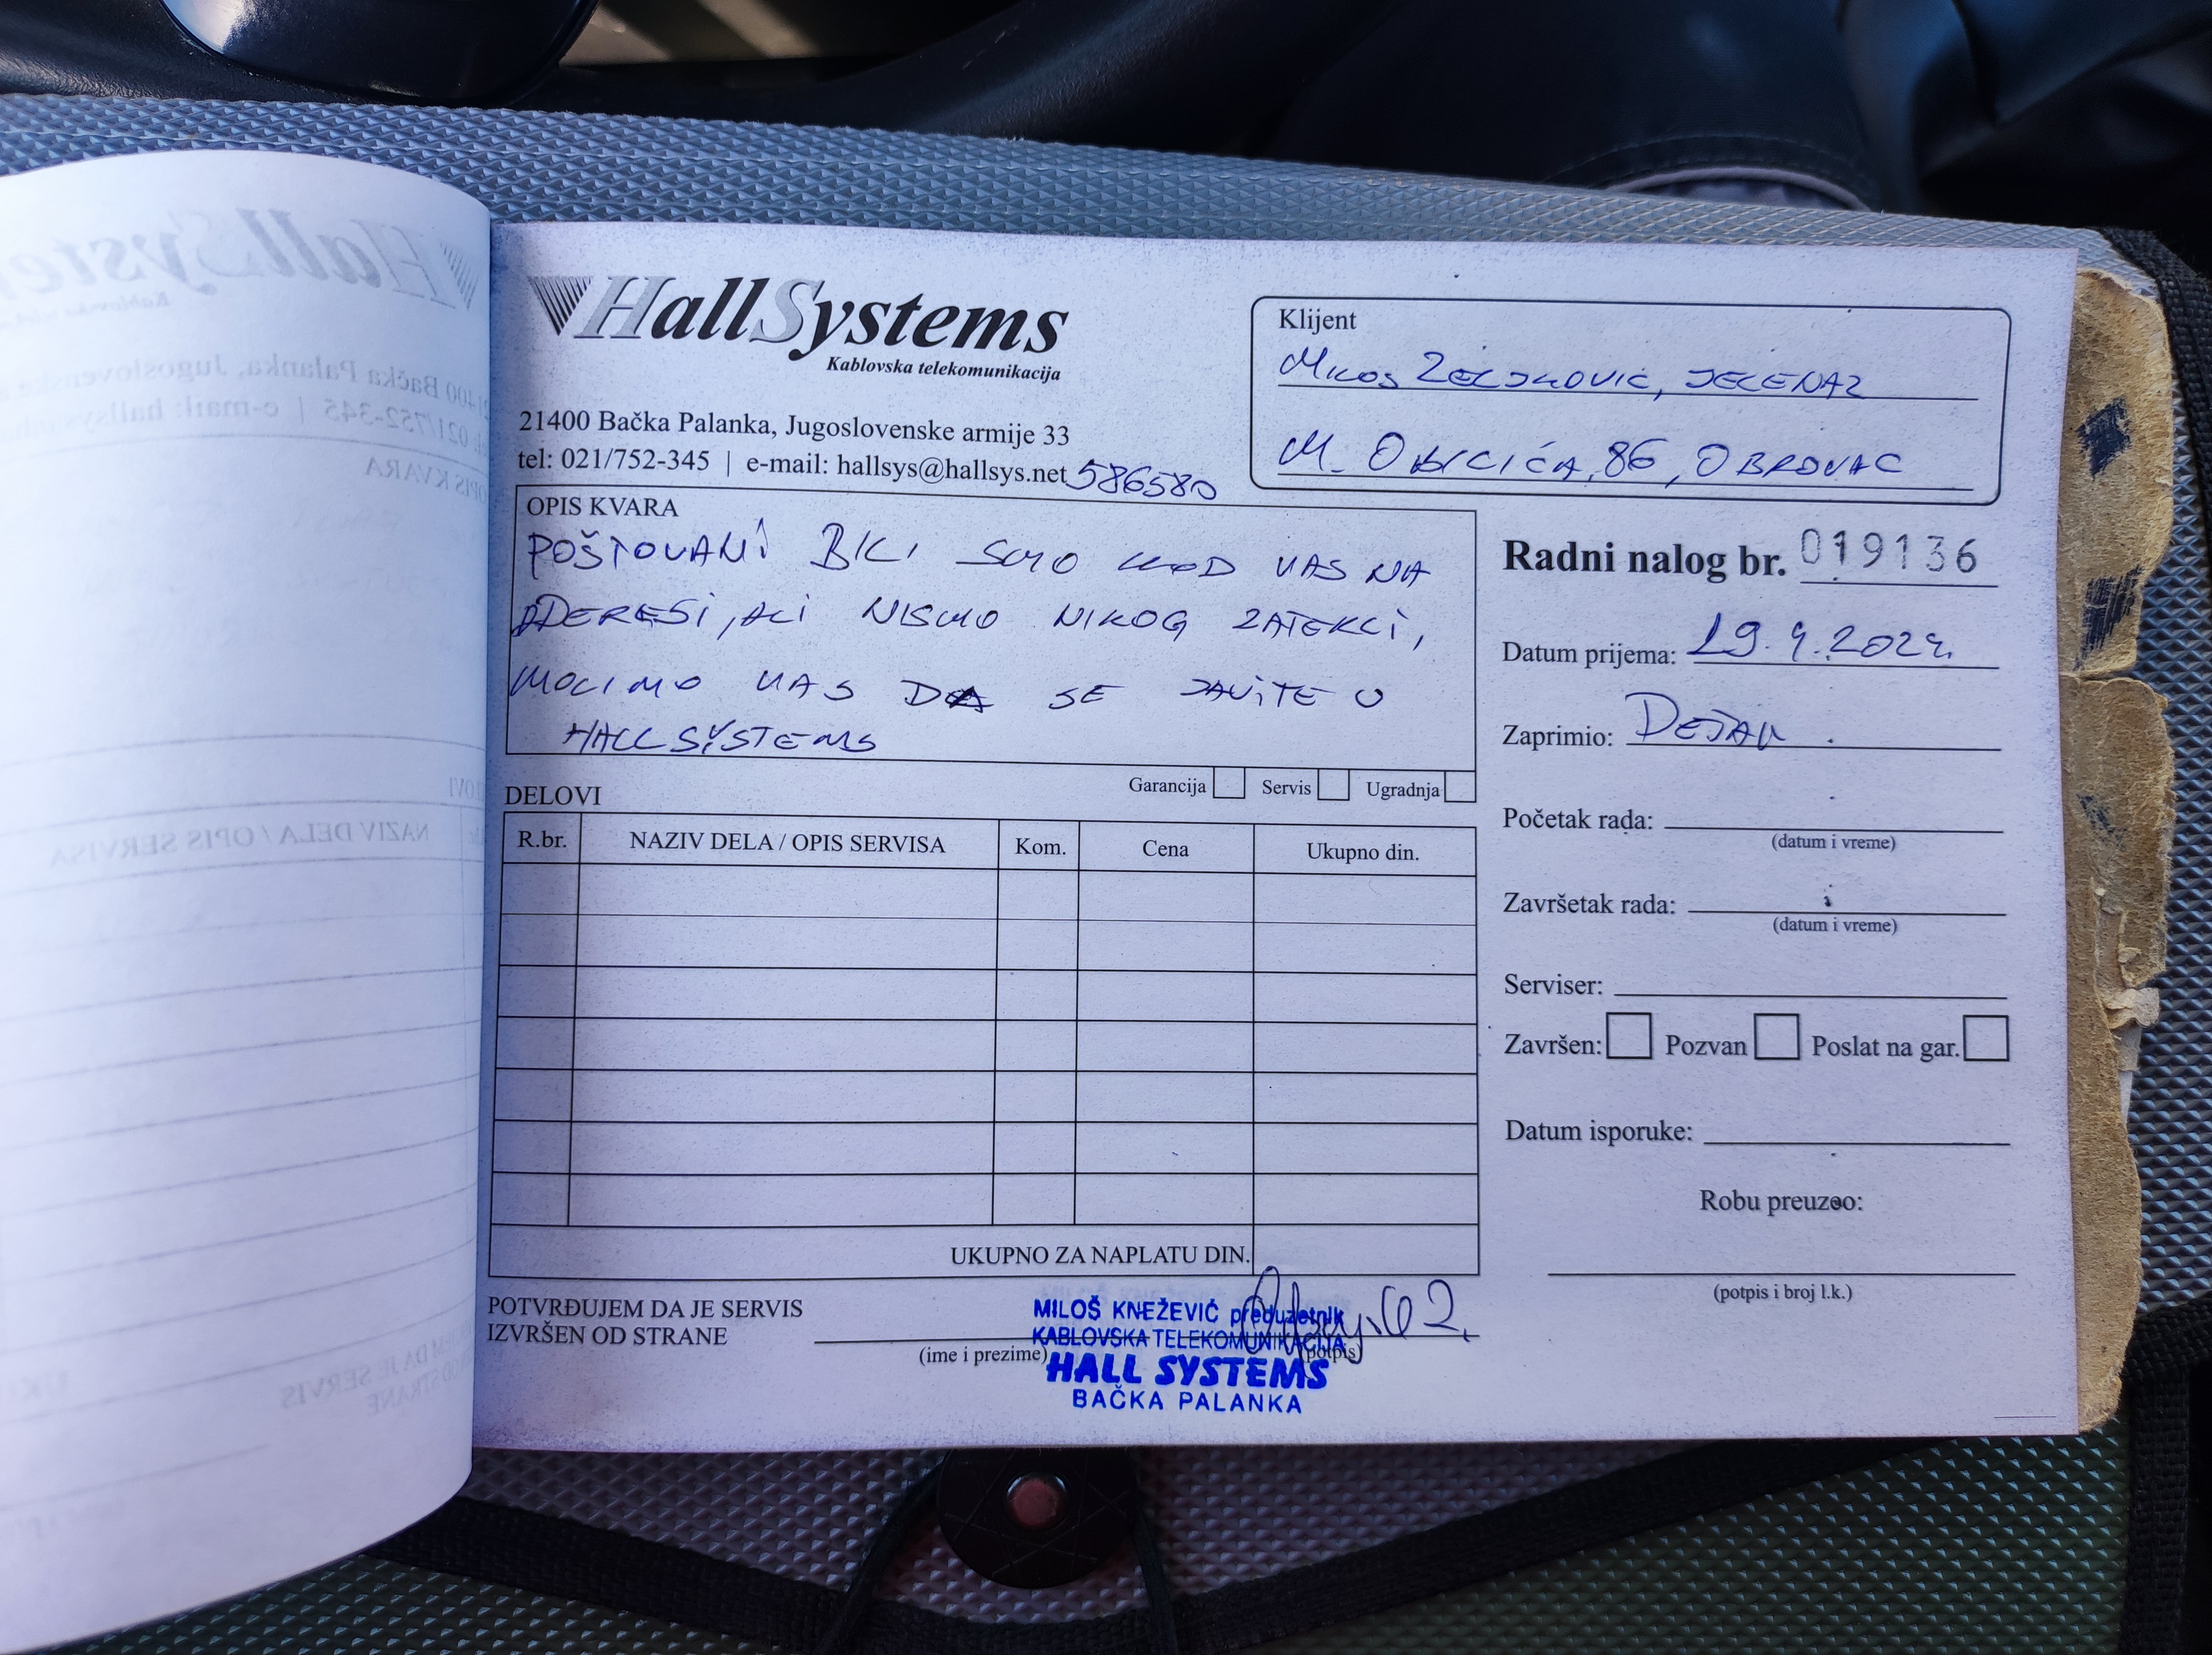 HallSystems
Kablovska telekomunikacija
21400 Bačka Palanka, Jugoslovenske armije 33
tel: 021/752-345 | e-mail: hallsys@hallsys.net 586580
Klijent
Miloš Zeljković, JELENA2
M. OBILIĆA, 86, OBROVAC
OPIS KVARA
POŠTOVANI BILI SMO KOD VAS NA
ADERESI, ALI NISMO NIKOG ZATEKLI,
MOLIMO VAS DA SE JAVITE U
HALL SYSTEMS
Garancija Servis Ugradnja
Radni nalog br. 019136
Datum prijema: 19.4.2024.
Zaprimio: DEJAN
Početak rada:
(datum i vreme)
Završetak rada:
(datum i vreme)
Serviser:
Završen: Pozvan Poslat na gar.
Datum isporuke:
Robu preuzeo:
(potpis i broj l.k.)
DELOVI
R.br. NAZIV DELA / OPIS SERVISA Kom. Cena Ukupno din.
UKUPNO ZA NAPLATU DIN.
POTVRĐUJEM DA JE SERVIS
IZVRŠEN OD STRANE
(ime i prezime) (potpis)
MILOŠ KNEŽEVIĆ preduzetnik
KABLOVSKA TELEKOMUNIKACIJA
HALL SYSTEMS
BAČKA PALANKA